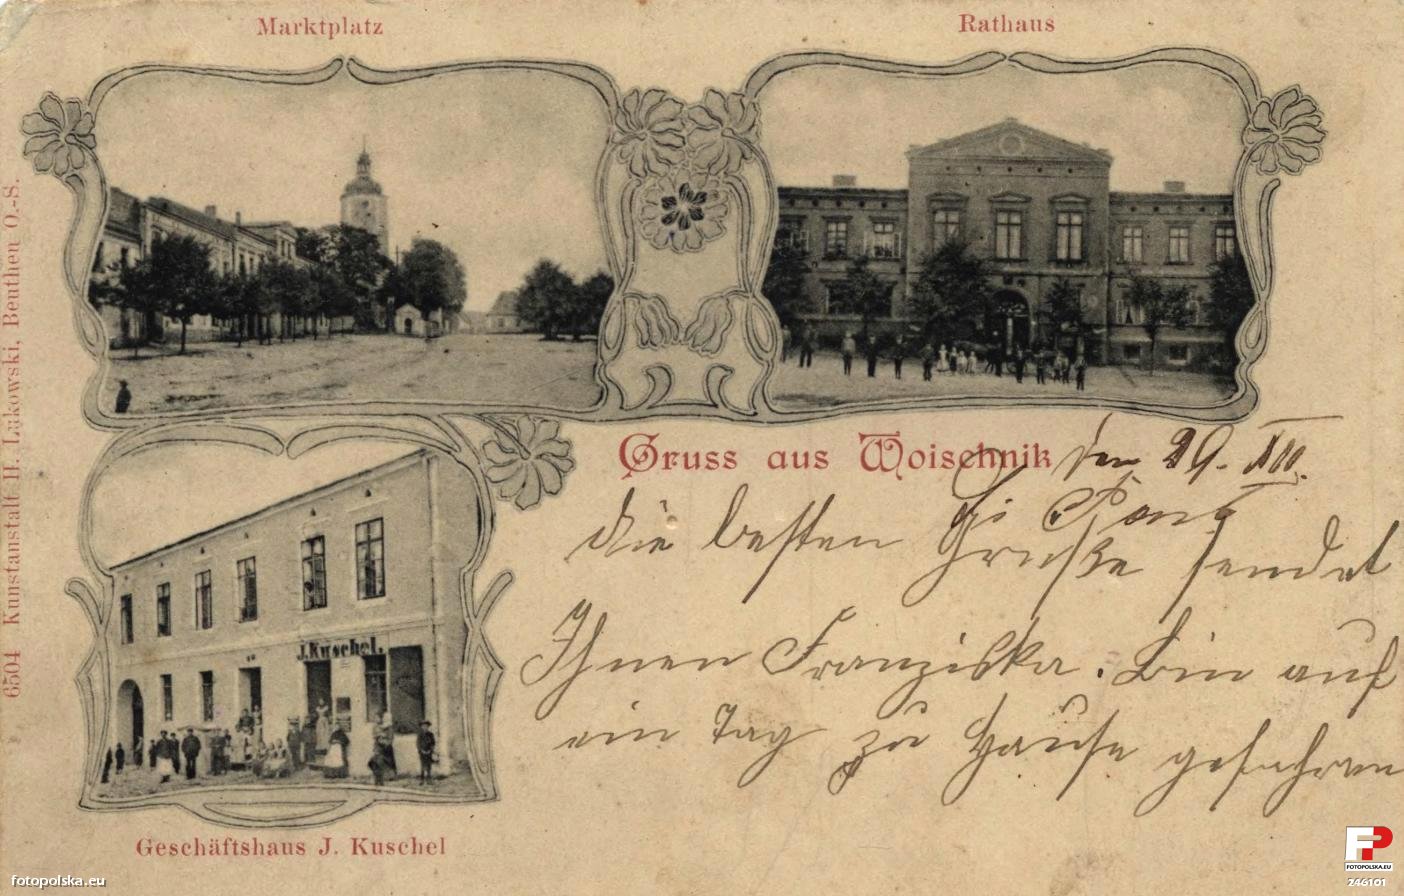 Marktplatz
Rathaus
6504 Kunstanstalt H. Lukowski, Beuthen O.-S.
J. Kuschel.
Gruss aus Woischnik
den 29. XII.
die besten Grüße sendet
Ihnen Franziska. Bin auf
ein Tag zu Hause gefahren
Geschäftshaus J. Kuschel
fotopolska.eu
FP
FOTOPOLSKA.EU
246101